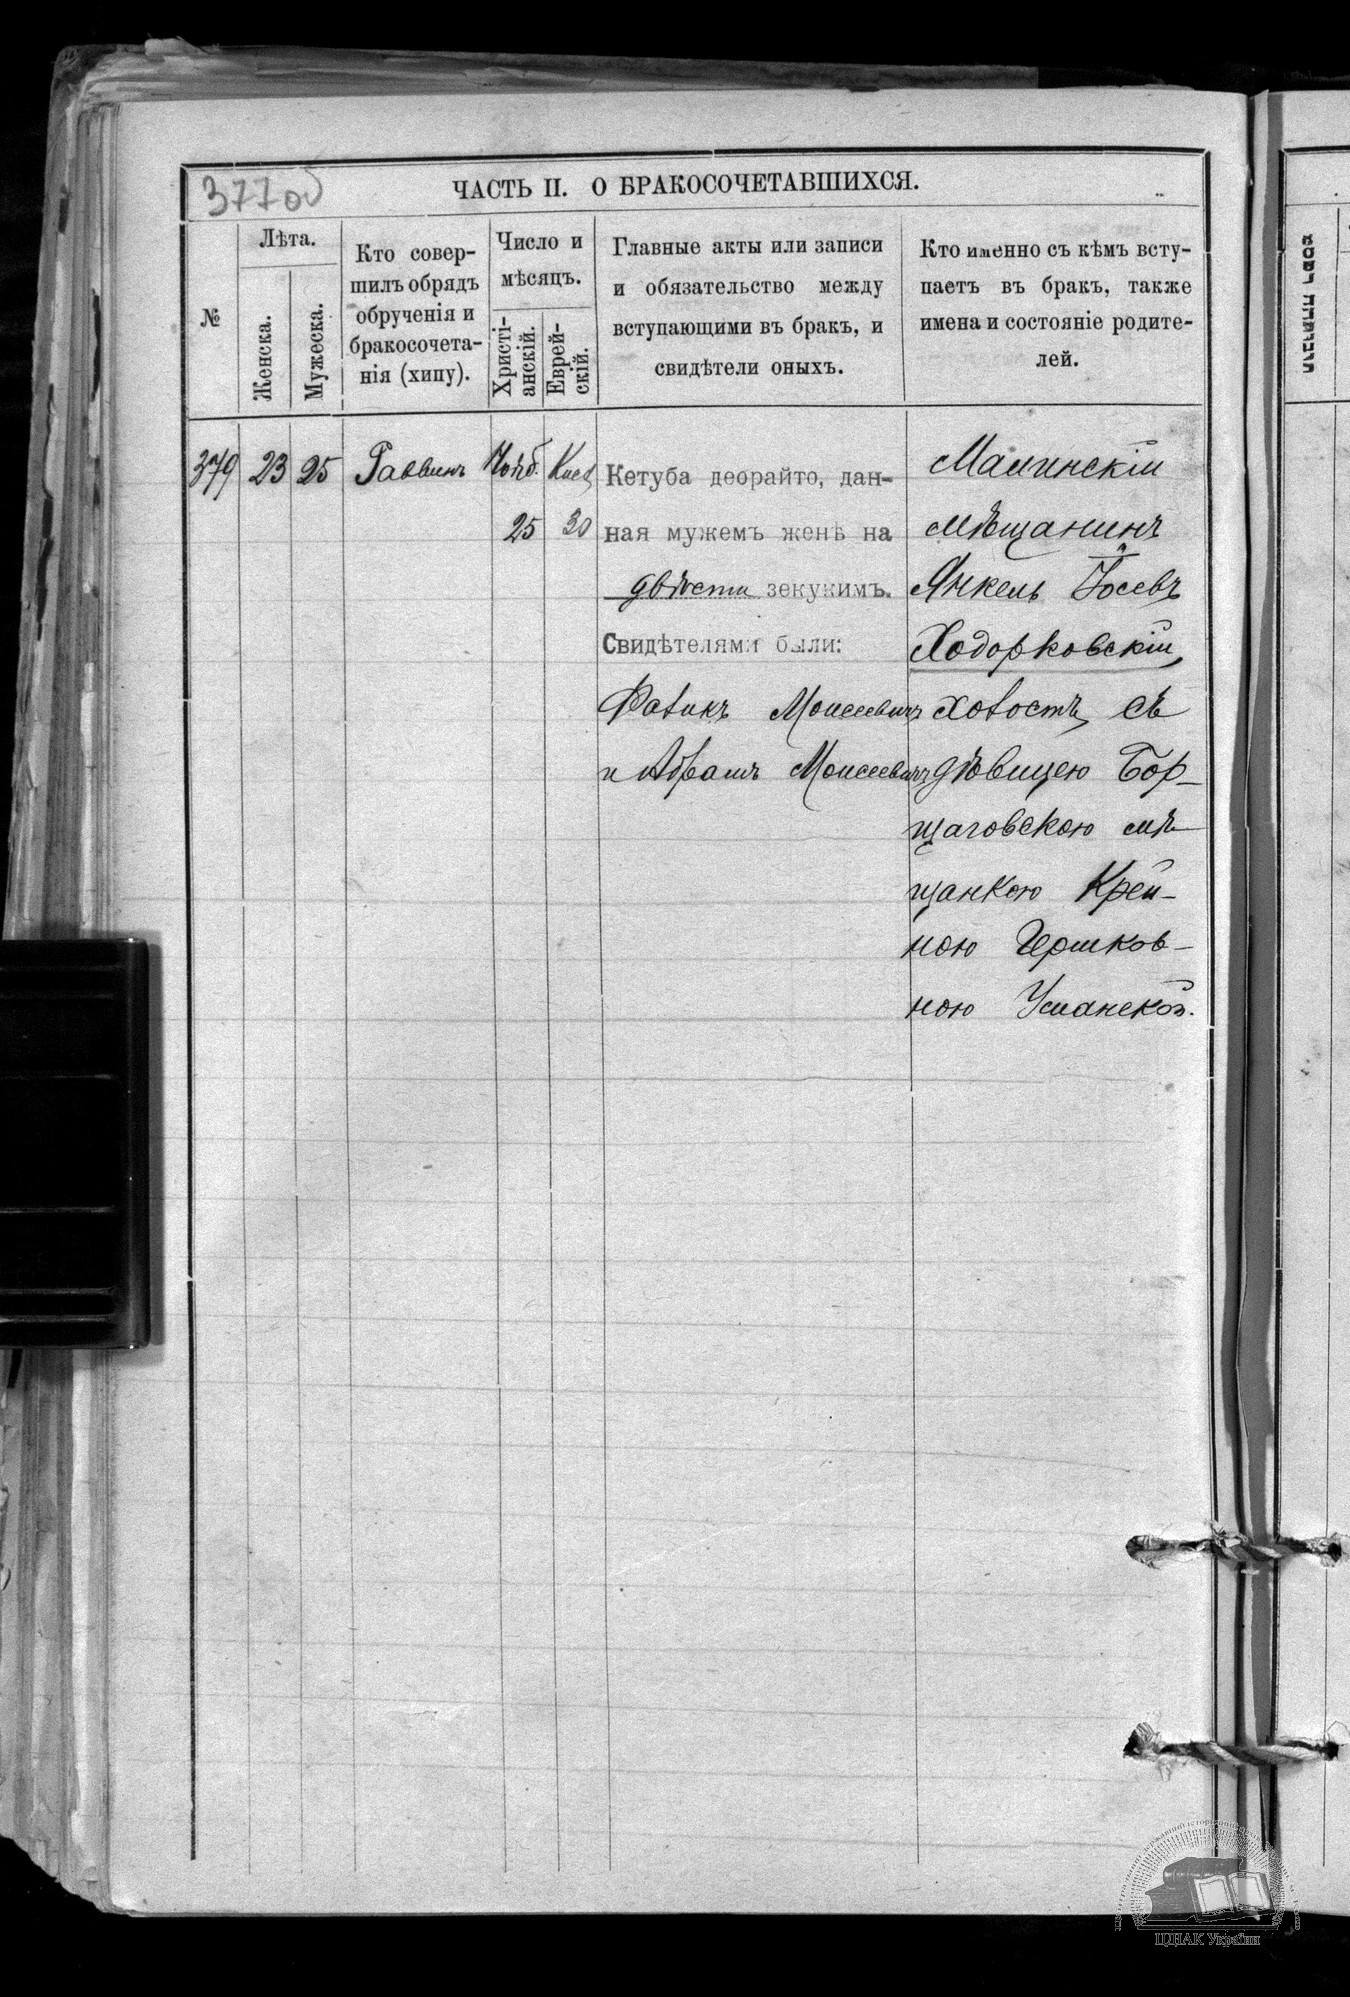 377об
ЧАСТЬ II. О БРАКОСОЧЕТАВШИХСЯ.
№
Лѣта.
Женска.
Мужеска.
Кто совер-
шилъ обрядъ
обрученія и
бракосочета-
нія (хипу).
Число и
мѣсяцъ.
Христі-
анскій.
Еврей-
скій.
Главные акты или записи
и обязательство между
вступающими въ бракъ, и
свидѣтели оныхъ.
Кто именно съ кѣмъ всту-
паетъ въ бракъ, также
имена и состояніе родите-
лей.
379
23
25
Раввинъ
Нояб.
25
30
Кетуба деорайто, дан-
ная мужемъ женѣ на
двѣсти зекукимъ.
Свидѣтелями были:
Фавикъ Моисеевичъ
и Абрамъ Моисеевичъ
Малинскій
мѣщанинъ
Янкель Іосевъ
Ходорковскій,
холостъ, съ
дѣвицею Бор-
щаговскою мѣ-
щанкою Крей-
ною Гершков-
ною Уманской.
ЦДІАК України